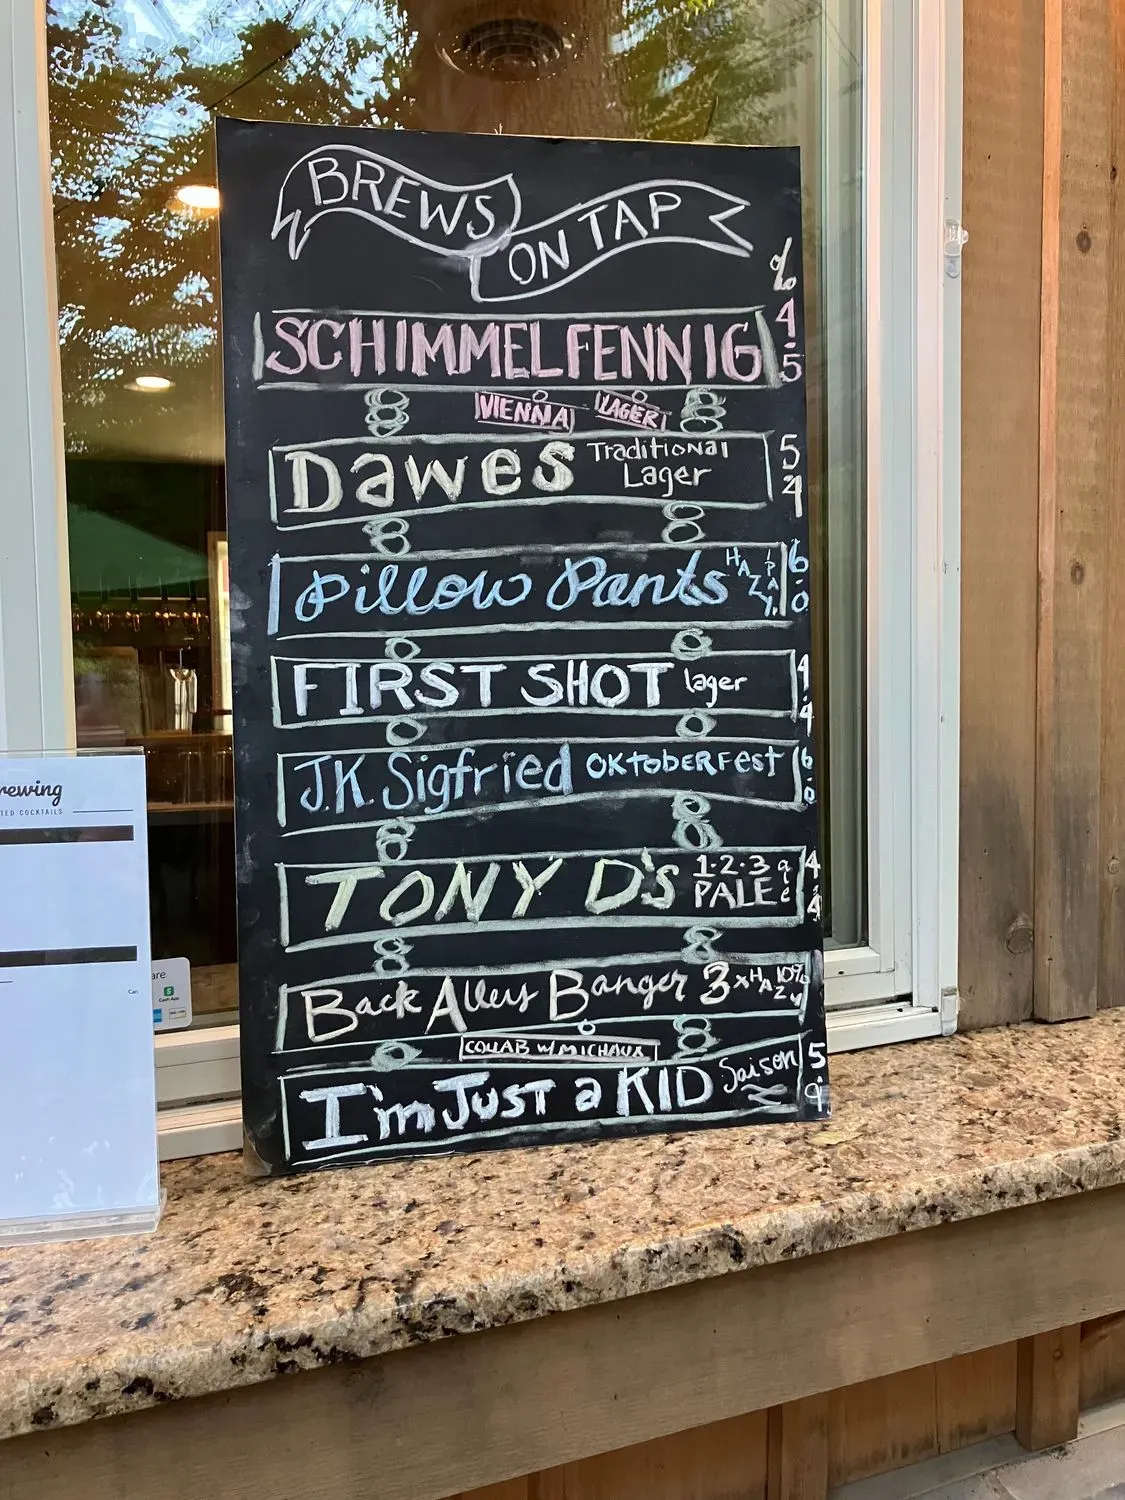 BREWS
ON TAP
%
SCHIMMELFENNIG 4.5
VIENNA LAGER
Dawes Traditional Lager 5.4
Pillow Pants HAZY IPA 6.0
FIRST SHOT lager 4.4
J.K. Sigfried OKTOBERFEST 6.0
TONY D'S 1·2·3 PALE 4.4
Back Alley Banger 3xHAZY 10%
COLLAB W/ MICHAUX
I'm JUST a KID Saison 5.9
rewing
TED COCKTAILS
Can
are
Cash App